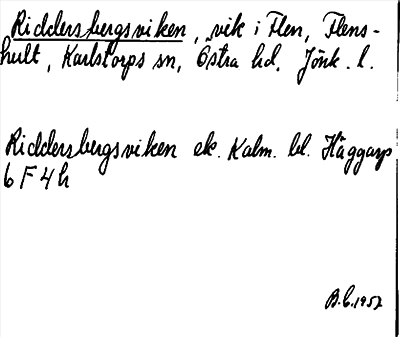 Riddersbergsviken, vik i Flen, Flens-
hult, Karlstorps sn, Östra hd, Jönk. l.
Riddersbergsviken ek. Kalm. bl. Häggarp
6 F 4 h
B.C. 1957